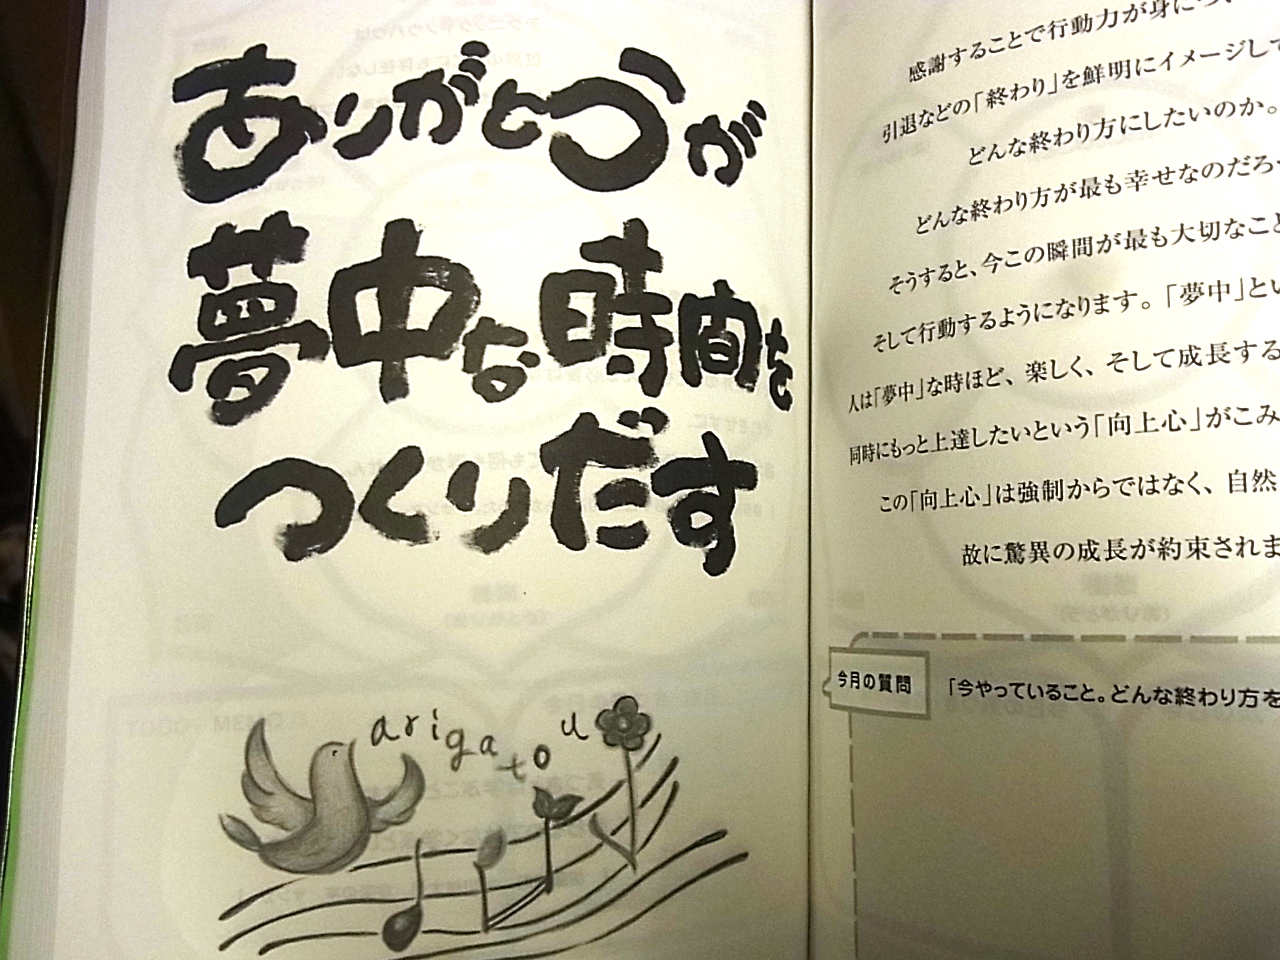 ありがとうが
夢中な時間を
つくりだす
arigatou
感謝することで行動力が身につ
引退などの「終わり」を鮮明にイメージして
どんな終わり方にしたいのか。
どんな終わり方が最も幸せなのだろ
そうすると、今この瞬間が最も大切なこと
そして行動するようになります。「夢中」とい
人は「夢中」な時ほど、楽しく、そして成長する
同時にもっと上達したいという「向上心」がこみ
この「向上心」は強制からではなく、自然
故に驚異の成長が約束されま
今月の質問
「今やっていること。どんな終わり方を